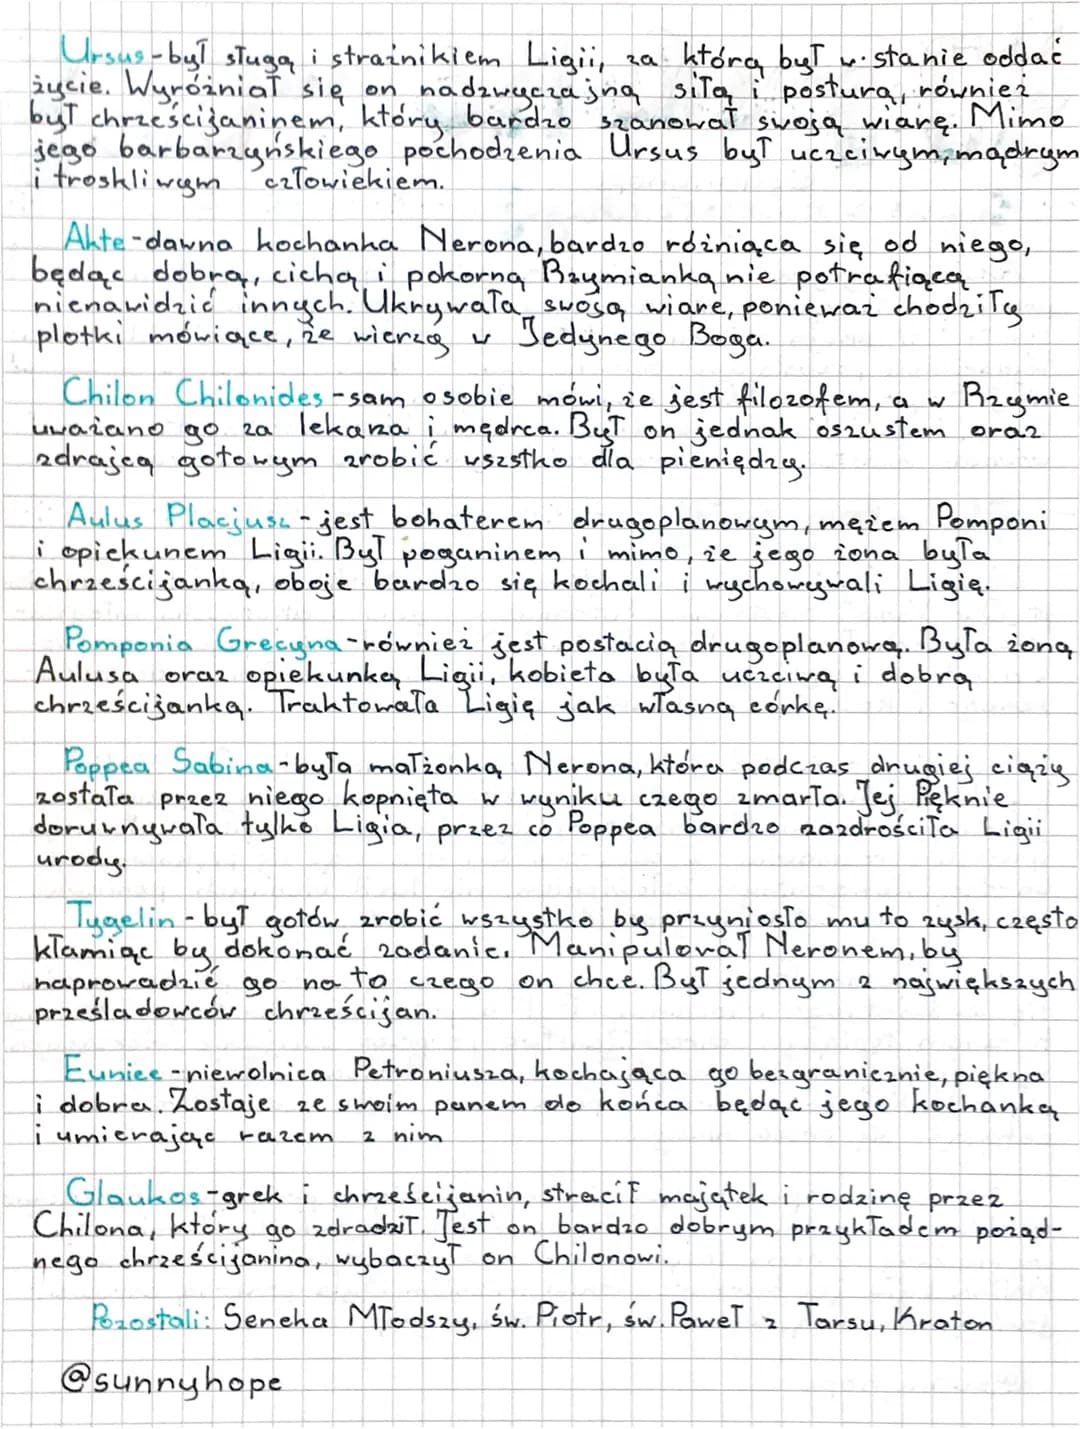 Ursus-był sługą i strażnikiem Ligii, za którą był w stanie oddać
życie. Wyróżniał się on nadzwyczajną siłą i posturą, również
był chrześcijaninem, który bardzo szanował swoją wiarę. Mimo
jego barbarzyńskiego pochodzenia Ursus był uczciwym, mądrym
i troskliwym człowiekiem.
Akte-dawna kochanka Nerona, bardzo różniąca się od niego,
będąc dobrą, cichą i pokorną Rzymianką nie potrafiącą
nienawidzić innych. Ukrywała swoją wiare, ponieważ chodziły
plotki mówiące, że wierzą w Jedynego Boga.
Chilon Chilonides-sam osobie mówi, że jest filozofem, a w Rzymie
uważano go za lekarza i mędrca. Był on jednak oszustem oraz
zdrajcą gotowym zrobić wszstko dla pieniędzy.
Aulus Placjusz-jest bohaterem drugoplanowym, mężem Pomponi
i opiekunem Ligii. Był poganinem i mimo, że jego żona była
chrześcijanką, oboje bardzo się kochali i wychowywali Ligię.
Pomponia Grecyna-również jest postacią drugoplanową. Była żoną
Aulusa oraz opiekunką Ligii, kobieta była uczciwą i dobrą
chrześcijanką. Traktowała Ligię jak własną córkę.
Poppea Sabina-była małżonką Nerona, która podczas drugiej ciąży
została przez niego kopnięta w wyniku czego zmarła. Jej Pięknie
dorównywała tylko Ligia, przez co Poppea bardzo zazdrościła Ligii
urody.
Tygelin-był gotów zrobić wszystko by przyniosło mu to zysk, często
kłamiąc by dokonać zadanie. Manipulował Neronem, by
naprowadzić go na to czego on chce. Był jednym z największych
prześladowców chrześcijan.
Eunice-niewolnica Petroniusza, kochająca go bezgranicznie, piękna
i dobra. Zostaje ze swoim panem do końca będąc jego kochanką
i umierając razem z nim
Glaukos-grek i chrześcijanin, stracił majątek i rodzinę przez
Chilona, który go zdradził. Jest on bardzo dobrym przykładem pożąd-
nego chrześcijanina, wybaczył on Chilonowi.
Pozostali: Seneka Młodszy, św. Piotr, św. Paweł z Tarsu, Kraton
@sunnyhope